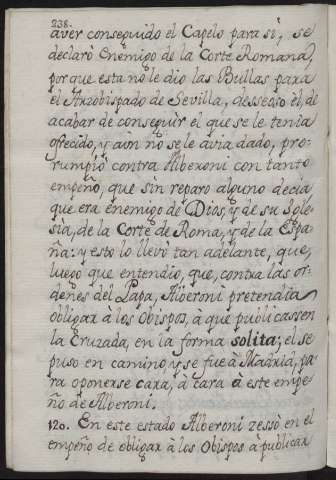 238.
aver conseguido el Capelo para sì, se
declarò Enemigo de la Corte Romana,
porque esta no le dio las Bullas para
el Arzobispado de Sevilla, desseoso èl, de
acabar de conseguir el que se le tenia
ofrecido, y aùn no se le avia dado, pro-
rumpiò contra Alberoni con tanto
empeño, que sin reparo alguno decia,
que era enemigo de Dios, y de su Igle-
sia, de la Corte de Roma, y de la Espa-
ña: y esto lo llevò tan adelante, que,
luego que entendio, que, contra las or-
denes del Papa, Alberoni pretendia
obligar à los Obispos, à que publicassen
la Cruzada, en la forma solita; el se
puso en camino, y se fue à Madrid, pa-
ra oponerse cara, à cara a este empe-
ño de Alberoni.
120. En este estado Alberoni zessò en el
empeño de obligar à los Obispos à publicar